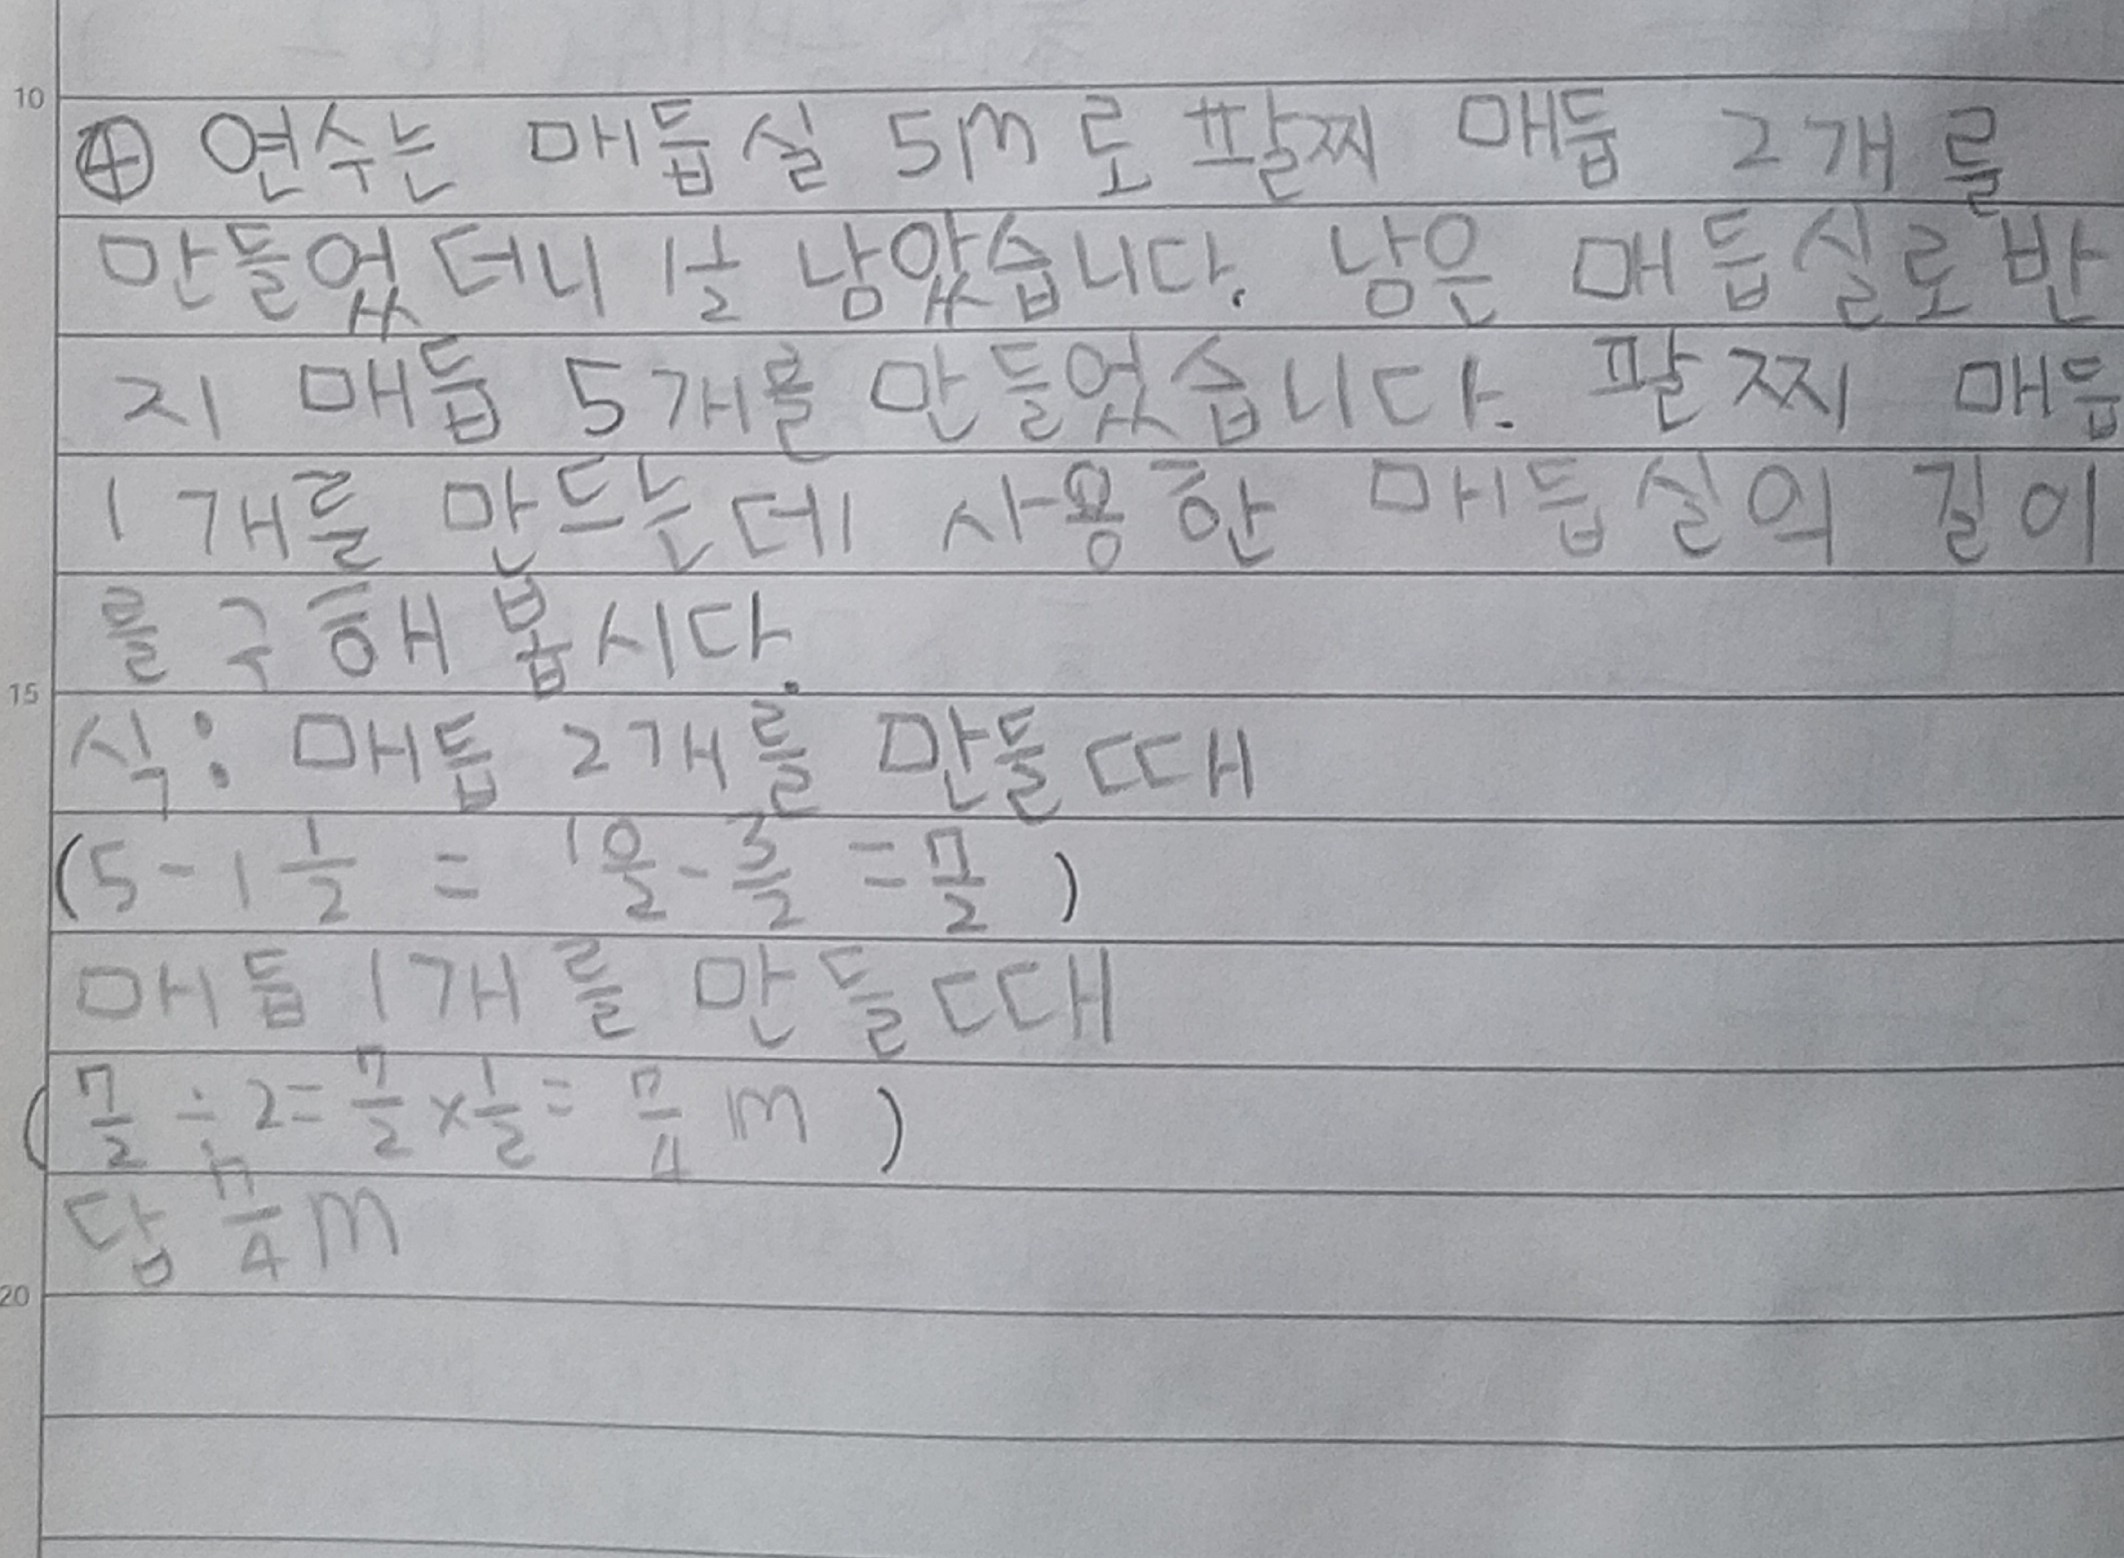 10
④ 연수는 매듭실 5m로 팔찌 매듭 2개를
만들었더니 1 1/2 남았습니다. 남은 매듭실로 반
지 매듭 5개를 만들었습니다. 팔찌 매듭
1개를 만드는데 사용한 매듭실의 길이
를 구해 봅시다.
15
식: 매듭 2개를 만들때
(5 - 1 1/2 = 10/2 - 3/2 = 7/2)
매듭 1개를 만들때
(7/2 ÷ 2 = 7/2 × 1/2 = 7/4 m)
답 7/4 m
20